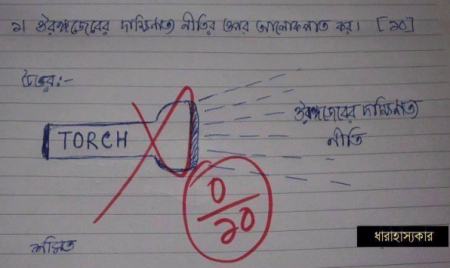 ১। ঔরঙ্গজেবের দাক্ষিণাত্য নীতির ওপর আলোকপাত কর। [১০]
উত্তর:-
TORCH
ঔরঙ্গজেবের দাক্ষিণাত্য
নীতি
০
১০
ধারাহাস্যকার